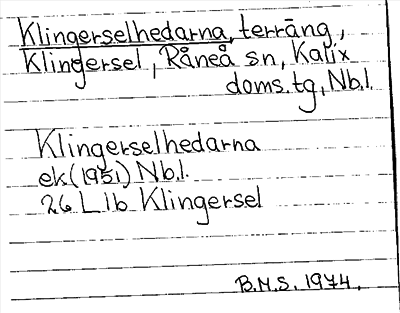 Klingerselhedarna, terräng,
Klingersel, Råneå sn, Kalix
doms.tg, Nb.l.
Klingerselhedarna
ek (1951) Nb.l.
26 L lb Klingersel
B.M.S. 1974.